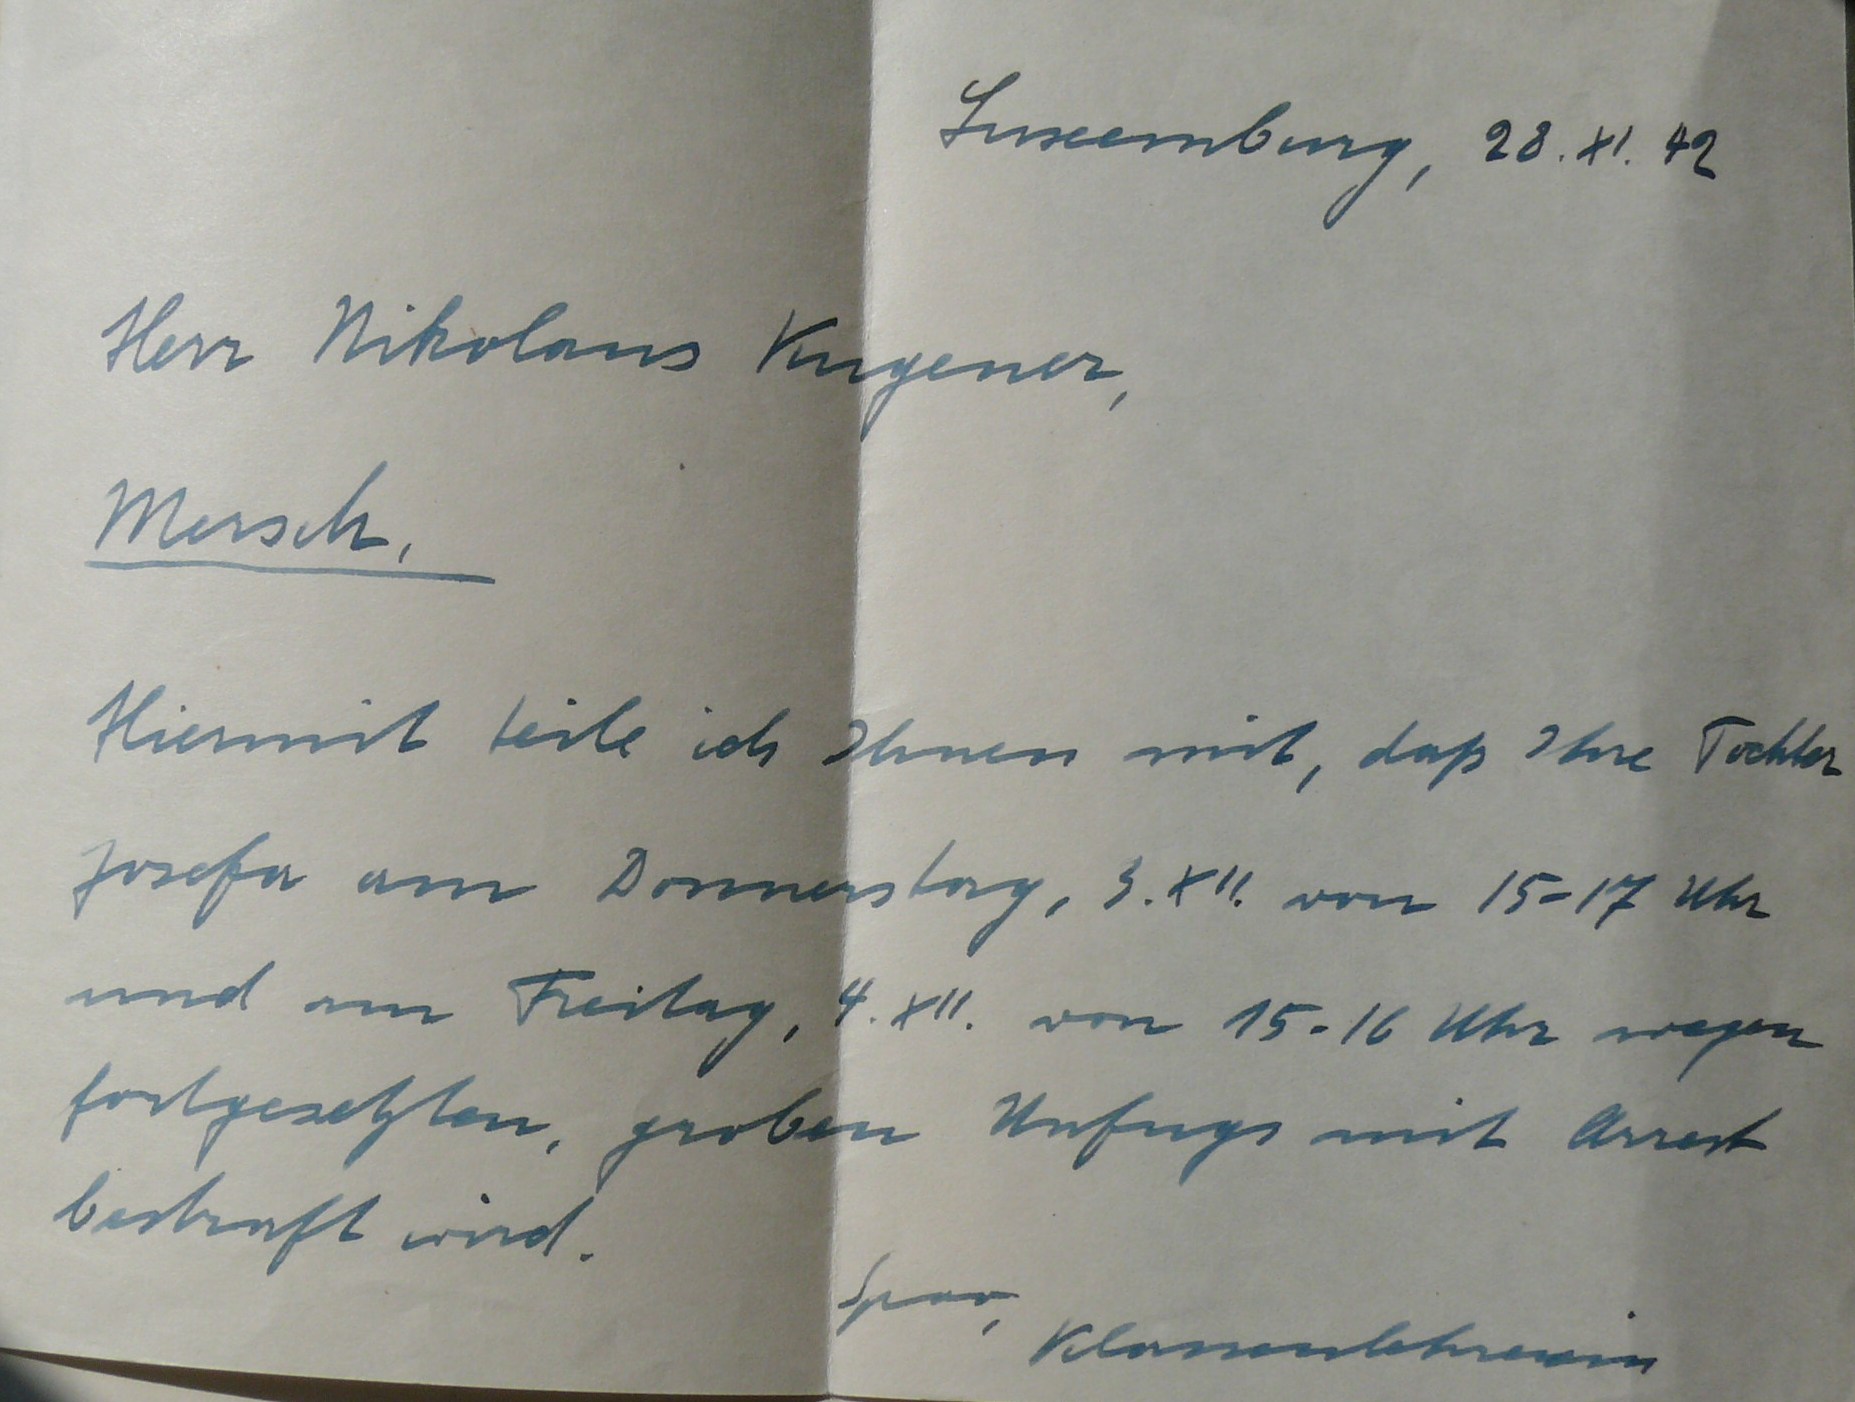 Luxemburg, 28. XI. 42
Herr Nikolaus Kugener,
Mersch.
Hiermit teile ich Ihnen mit, daß Ihre Tochter
Josefa am Donnerstag, 3. XII. von 15-17 Uhr
und am Freitag, 4. XII. von 15-16 Uhr wegen
fortgesetzten, groben Unfugs mit Arrest
bestraft wird.
Klassenlehrerin